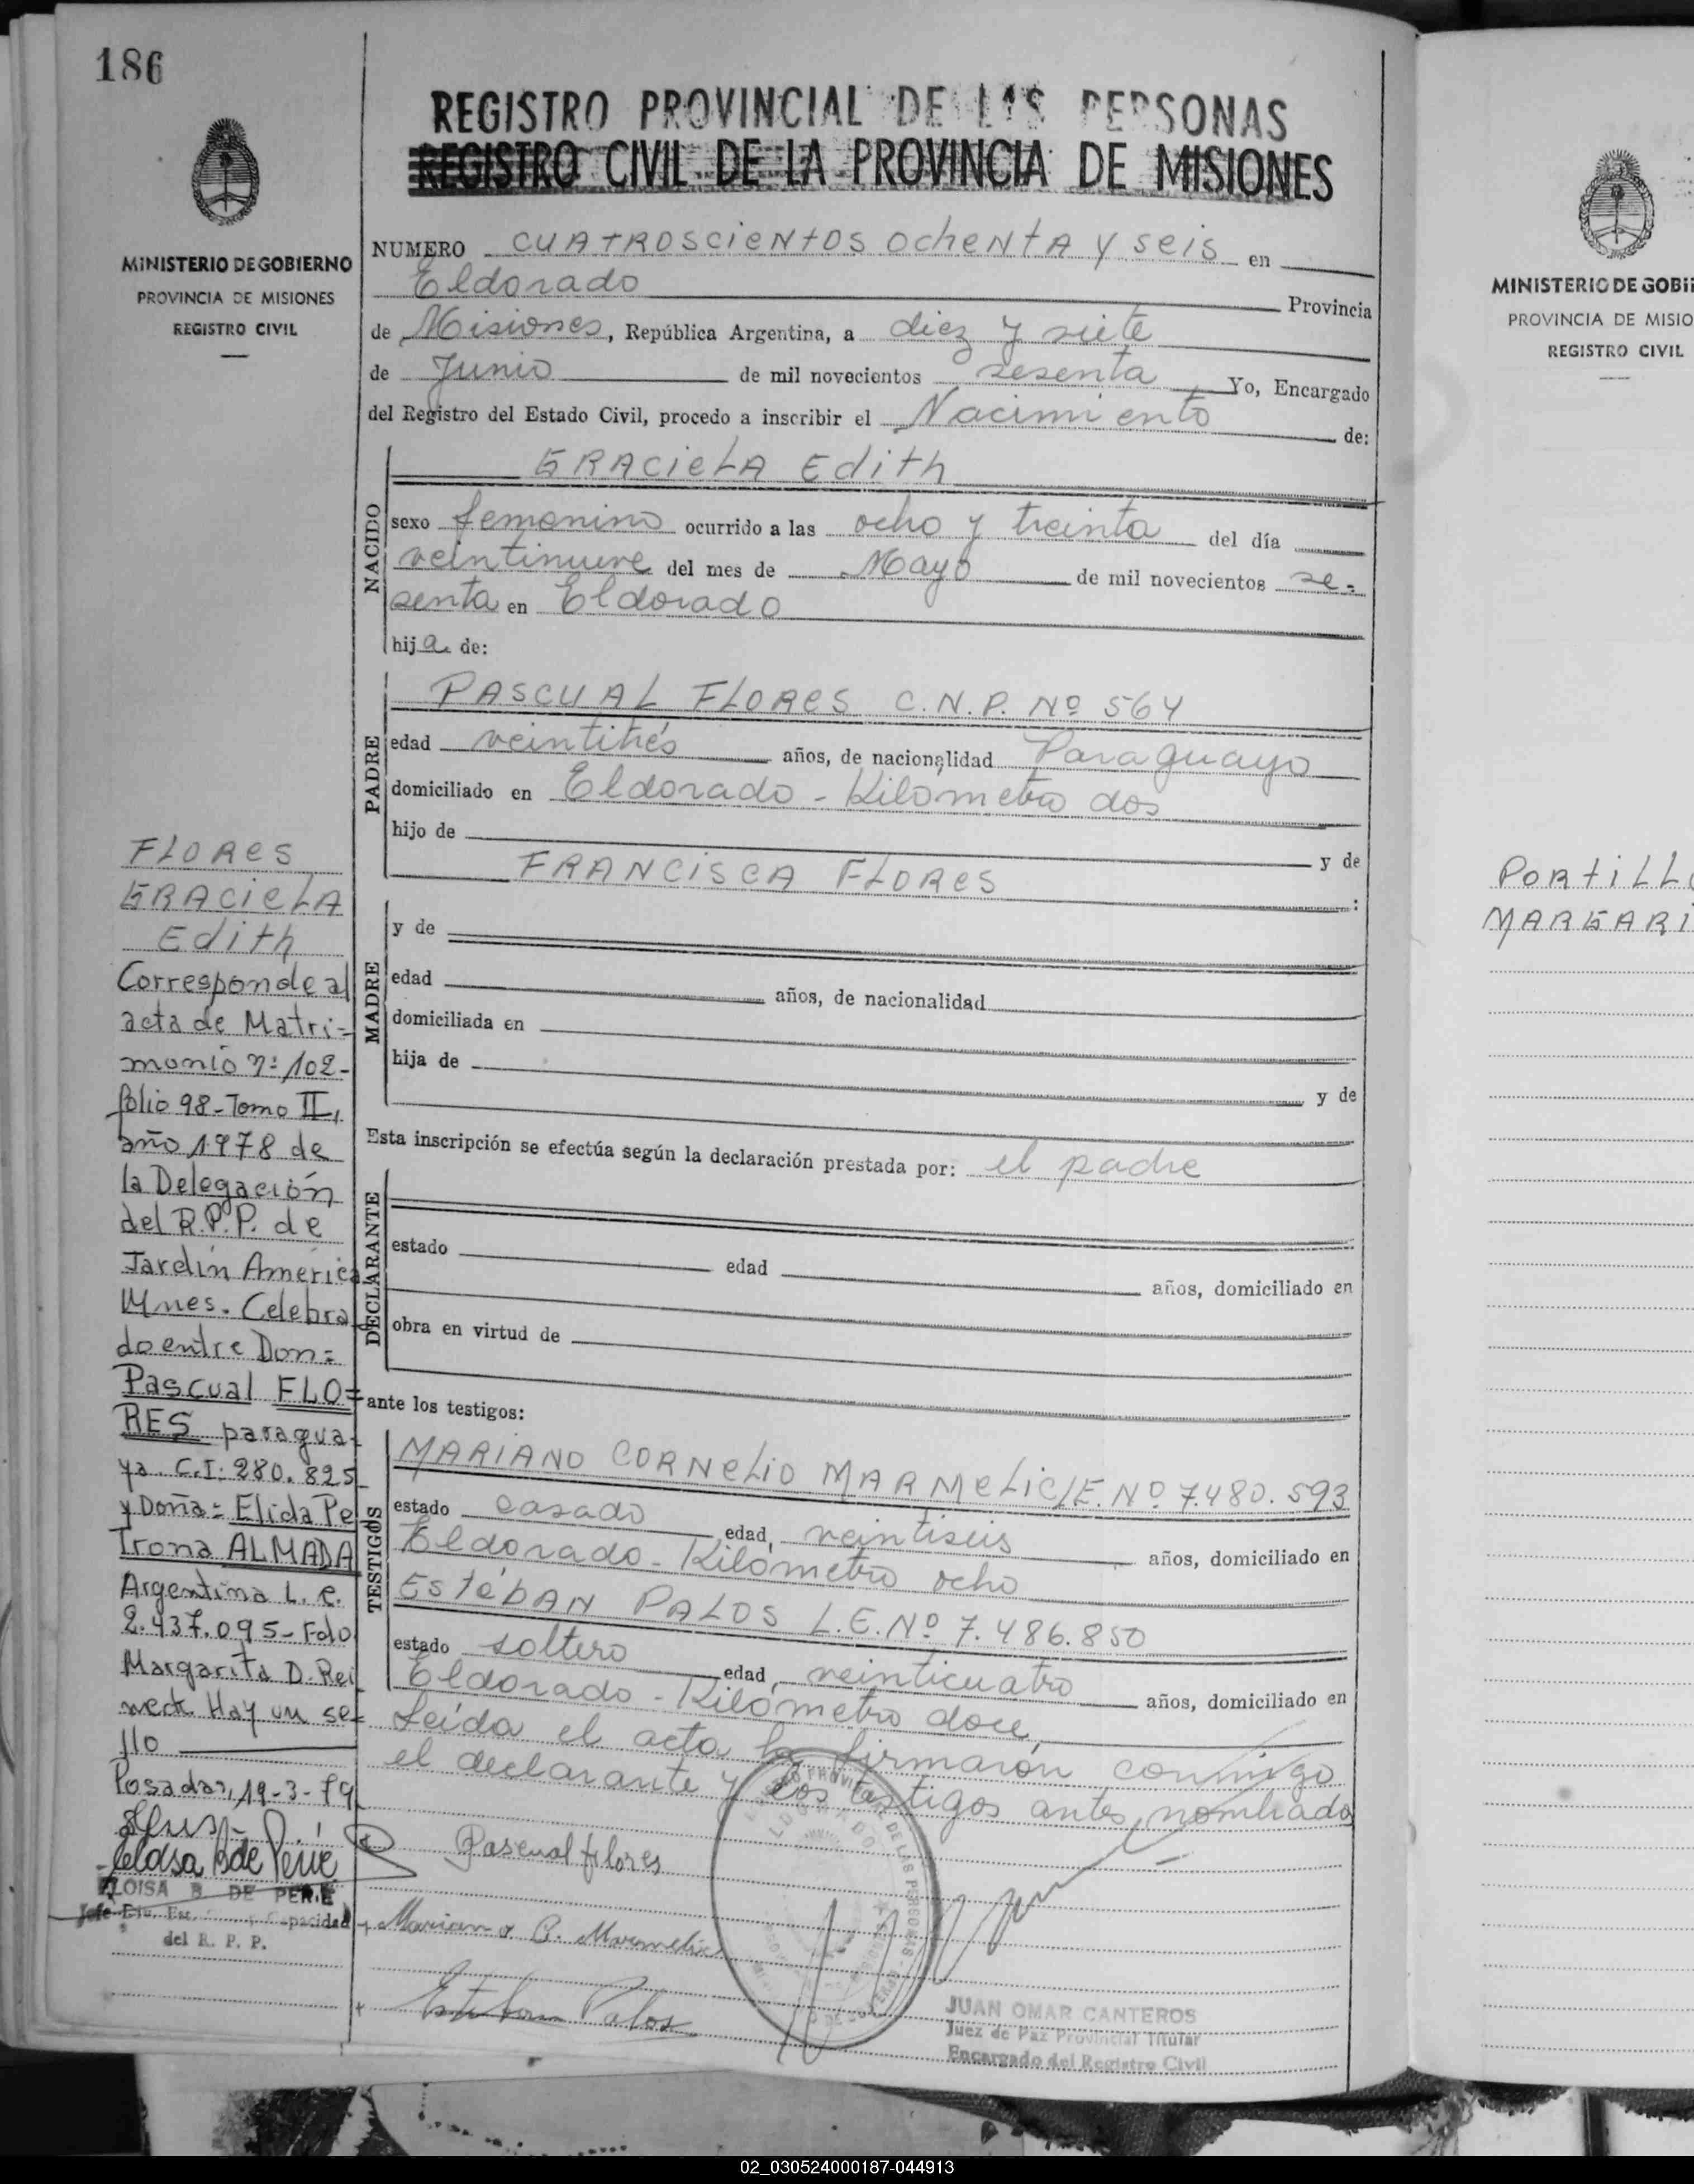 186
REGISTRO PROVINCIAL DE LAS PERSONAS
REGISTRO CIVIL DE LA PROVINCIA DE MISIONES
MINISTERIO DE GOBIERNO
PROVINCIA DE MISIONES
REGISTRO CIVIL
NUMERO CUATROSCIENTOS OCHENTA Y SEIS en
Eldorado Provincia
de Misiones, República Argentina, a diez y siete
de Junio de mil novecientos sesenta Yo, Encargado
del Registro del Estado Civil, procedo a inscribir el Nacimiento de:
NACIDO
GRACIELA Edith
sexo femenino ocurrido a las ocho y treinta del día
veintinueve del mes de Mayo de mil novecientos se-
senta en Eldorado
hija de:
PADRE
PASCUAL FLORES C.N.P. Nº 564
edad veintitrés años, de nacionalidad Paraguayo
domiciliado en Eldorado - Kilómetro dos
hijo de y de
FRANCISCA FLORES :
MADRE
y de
edad años, de nacionalidad
domiciliada en
hija de
y de
Esta inscripción se efectúa según la declaración prestada por: el padre
DECLARANTE
estado edad años, domiciliado en
obra en virtud de
ante los testigos:
TESTIGOS
MARIANO CORNELIO MARMELIC L.E. Nº 7.480.593
estado casado edad, veintiseis años, domiciliado en
Eldorado - Kilómetro ocho
ESTEBAN PALOS L.E. Nº 7.486.850
estado soltero edad, veinticuatro años, domiciliado en
Eldorado - Kilómetro doce,
Leída el acta la firmaron conmigo
el declarante y los testigos antes nombrados
Pascual flores
Mariano C. Marmelic
Esteban Palos
JUAN OMAR CANTEROS
Juez de Paz Provincial Titular
Encargado del Registro Civil
FLORES
GRACIELA
Edith
Corresponde al
acta de Matri-
monio nº 102-
folio 98-Tomo II,
año 1978 de
la Delegación
del R.P.P. de
Jardín America
Mnes. Celebra
do entre Don=
Pascual FLO=
RES paragua-
ya C.I: 280.825
y Doña= Elida Pe
trona ALMADA
Argentina L.C.
2.437.095- Fdo
Margarita D. Rei
neck Hay un se-
llo
Posadas, 19-3-79
ELOISA B DE PERIE
del R. P. P.
MINISTERIO DE GOBI
PROVINCIA DE MISIO
REGISTRO CIVIL
PORTILLO
MARGARI
02_030524000187-044913